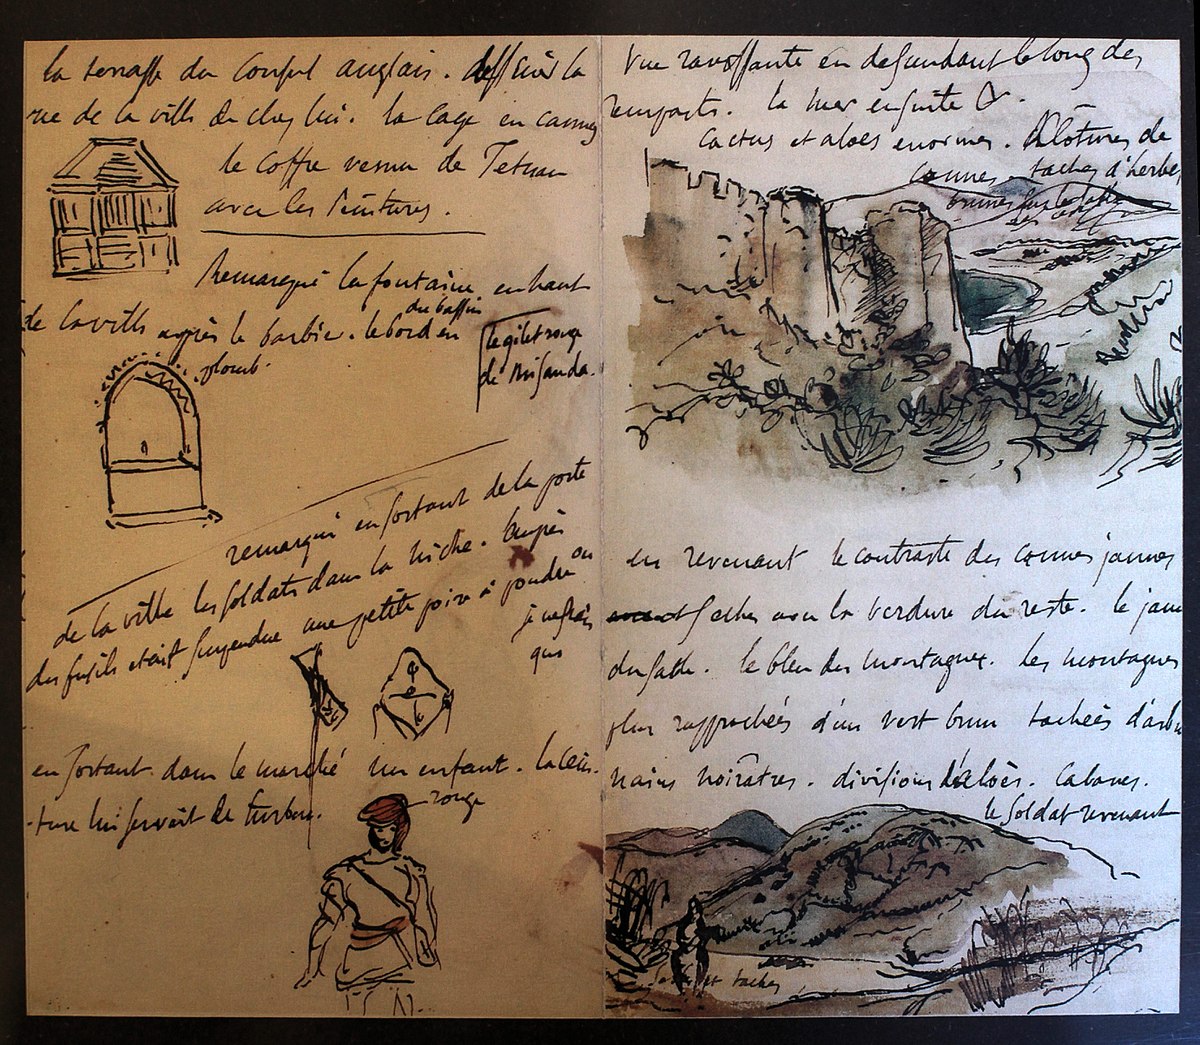 la terrasse du Consul anglais. dessiné la
vue de la ville de chez lui. la cage en cannes
le coffre venu de Tetuan
avec les peintures.
Remarqué la fontaine en haut
de la ville après le barbier. le bord
du bassin
en
plomb.
le gilet rouge
de
remarqué en sortant de la porte
de la ville les soldats dans la niche. Auprès
des fusils etait suspendue une petite poire à poudre ou
je ne sais
quoi
en sortant dans le marché un enfant. la cein-
-ture lui servait de turban.
rouge
Vue ravissante en descendant le long des
remparts. la mer ensuite &.
cactus et aloes enormes. Clotures de
cannes. taches d'herbes
brunes sur le sable
en revenant le contraste des cannes jaunes
seches avec la verdure du reste. le jaune
du sable. le bleu des montagnes. les montagnes
plus rapprochées d'un vert brun tachées d'arbu
nains noirâtres. divisions d'aloès. Cabanes.
le soldat revenant
et taches